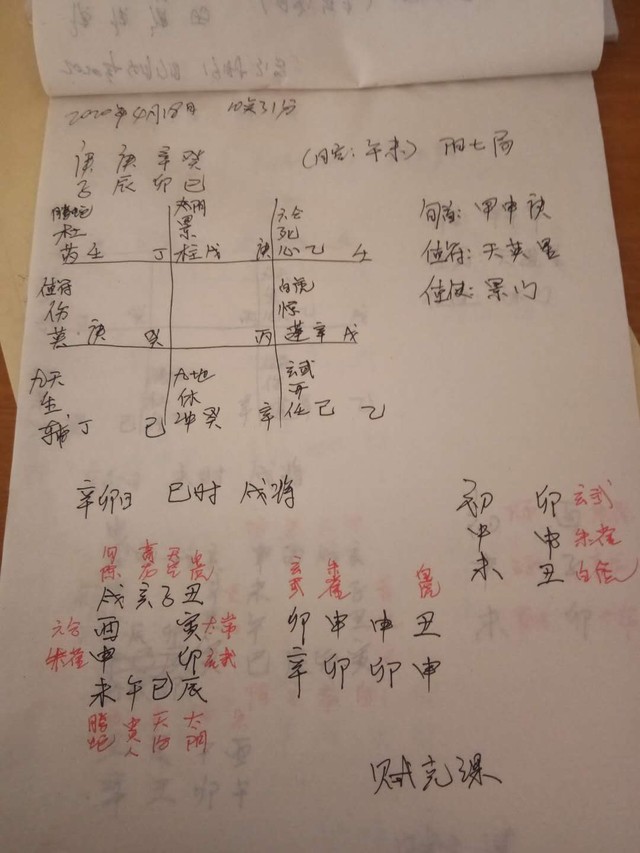 2020年4月18日 10点31分
庚 庚 辛 癸
子 辰 卯 巳
(日空:午未) 阳七局
旬首:甲申庚
值符:天英星
值使:景门
腾蛇 太阴 六合
杜 景 死
芮 壬 丁 柱 戊 庚 心 乙 壬
值符 白虎
伤 惊
英 庚 癸 丙 蓬 辛 戊
九天 九地 玄武
生 休 开
辅 丁 己 冲 癸 辛 任 己 乙
辛卯日 巳时 戌将
初 卯 玄武
中 申 朱雀
末 丑 白虎
勾陈 青龙 天空 白虎
戌 亥 子 丑
六合 酉 寅 太常
朱雀 申 卯 玄武
未 午 巳 辰
腾蛇 贵人 天后 太阴
玄武 朱雀 白虎
卯 申 申 丑
辛 卯 卯 申
贼克课